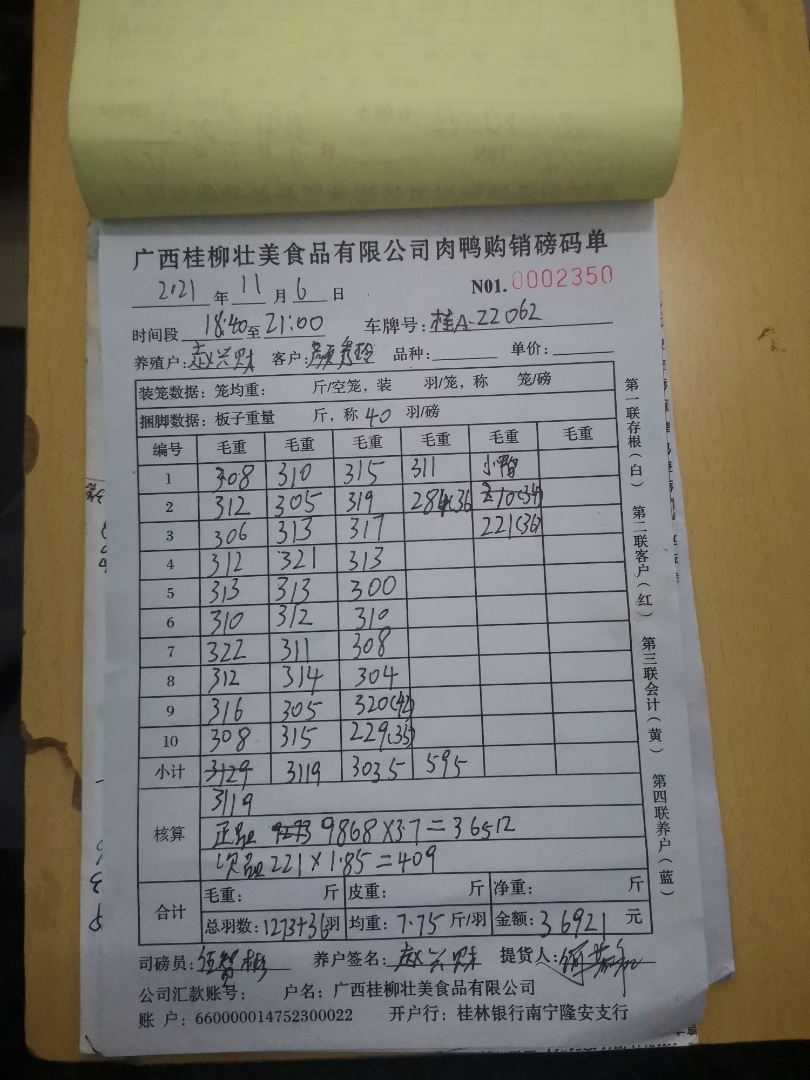 广西桂柳壮美食品有限公司肉鸭购销磅码单
2021 年 11 月 6 日 N01.0002350
时间段 18:40 至 21:00 车牌号: 桂A-22062
养殖户: 赵兴财 客户: 品种: 单价:
装笼数据: 笼均重: 斤/空笼, 装 羽/笼, 称 笼/磅
捆脚数据: 板子重量 斤, 称 40 羽/磅
编号 毛重 毛重 毛重 毛重 毛重 毛重
1 308 310 315 311 小鸭
2 312 305 319 284(36 210(34)
3 306 313 317 221(36)
4 312 321 313
5 313 313 300
6 310 312 310
7 322 311 308
8 312 314 304
9 316 305 320(42)
10 308 315 229(35)
小计 3129 3119 3035 595
3119
核算 正品 9273 9868×3.7=36512
次品 221×1.85=409
合计 毛重: 斤 皮重: 斤 净重: 斤
总羽数: 1273+36 羽 均重: 7.75 斤/羽 金额: 36921 元
司磅员: 养户签名: 赵兴财 提货人:
公司汇款账号: 户名: 广西桂柳壮美食品有限公司
账 户: 660000014752300022 开户行: 桂林银行南宁隆安支行
第一联存根(白) 第二联客户(红) 第三联会计(黄) 第四联养户(蓝)